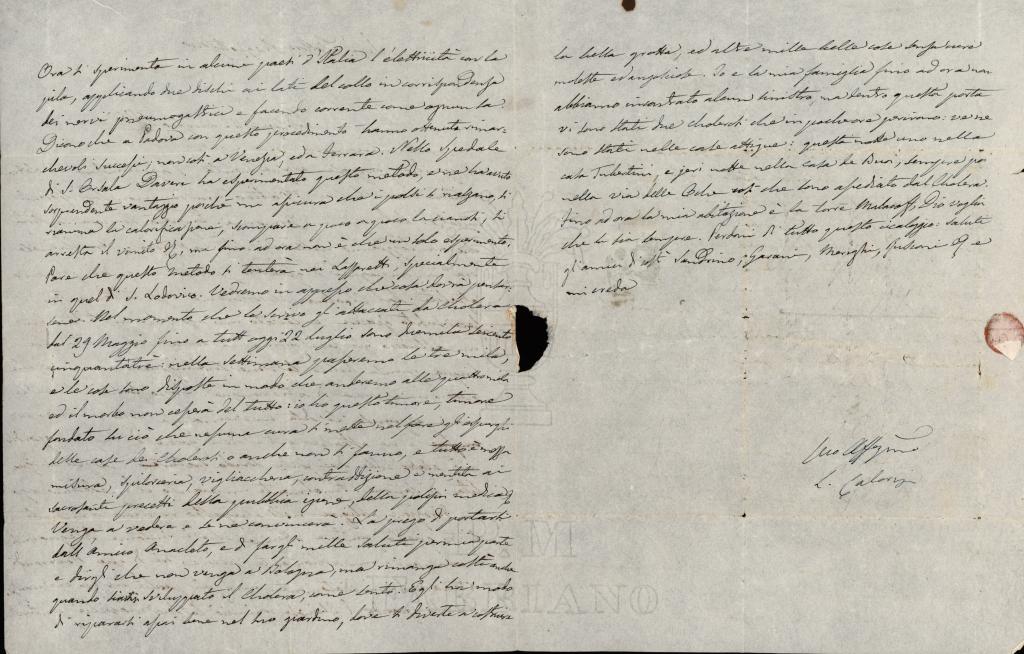 Ora si sperimenta in alcune parti d'Italia l'elettricità con la
pila, applicando due dischi ai lati del collo in corrispondenza
dei nervi pneumogastrici e facendo corrente come ognun sa
Dicono che a Padova con questo procedimento hanno ottenuto rimar-
chevoli successi; non così a Venezia, ed a Ferrara. Nello Spedale
di S. Orsola Daveri ha esperimentato questo metodo, e ne ha avuto
sorprendente vantaggio poichè mi assicura che i polsi si rialzano, si
rianima la calorificazione, scompare a poco a poco la cianosi, si
arresta il vomito &, ma fino ad ora non è che un solo esperimento.
Pare che questo metodo si tenterà nei Lazzaretti specialmente
in quel di S. Lodovico. Vedremo in appresso che cosa dovrà pensar-
sene. Nel momento che le scrivo gli attaccati da Cholera
dal 29 Maggio fino a tutt'oggi 22 Luglio sono duemila seicento
cinquantatrè: nella settimana passeremo le tre mila,
e le cose sono disposte in modo che anderemo alle quattromila
ed il morbo non cesserà del tutto: io ho questo timore, timore
fondato su ciò che nessuna cura si mette nel fare gli espurghi
delle case dei cholerosi o anche non si fanno, e tutto è mezza
misura, spilorceria, vigliaccheria, contraddizione e mentita ai
sacrosanti precetti della pubblica igiene, della polizia medica &
Venga a vedere e se ne convincerà. La prego di portarsi
dall'Amico Anacleto, e di fargli mille saluti per mia parte
e dirgli che non venga a Bologna, ma rimanga costì anche
quando siasi sviluppato il Cholera, come sento. Egli ha modo
di ripararsi assai bene nel suo giardino, dove si diverte a costruir
la bella grotta, ed altre mille belle cose
moleste ed angustiose. Io e la mia famiglia fino ad ora non
abbiamo incontrato alcun sinistro, ma dentro questa porta
vi sono stati due cholerosi che in poche ore perirono: ve ne
sono stati nelle case attigue: questa notte uno nella
casa Tubertini, e jeri notte nella casa de Buoi, sempre poi
nella via delle Oche che sono assediato dal Cholera.
Fino ad ora la mia abitazione è la torre Malacoff. Dio voglia
che lo sia sempre. Perdoni di tutto questo cicaleggio. Saluti
gli amici di costì Sandrino, Marighi, & e
mi creda
Suo Affezmo
L. Calori